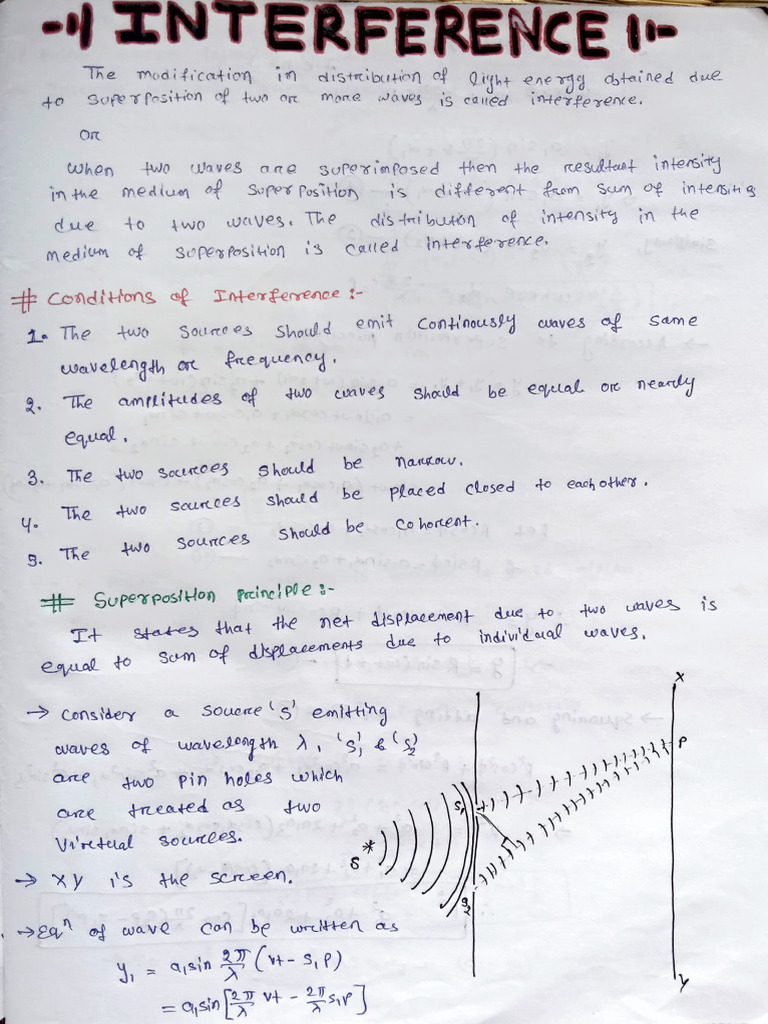 INTERFERENCE
The modification in distribution of light energy obtained due
to superposition of two or more waves is called interference.
OR
when two waves are superimposed then the resultant intensity
in the medium of superposition is different from sum of intensities
due to two waves. The distribution of intensity in the
medium of superposition is called interference.
# Conditions of Interference :-
1. The two sources should emit continously waves of same
wavelength or frequency.
2. The amplitudes of two waves should be equal or nearly
equal.
3. The two sources should be narrow.
4. The two sources should be placed closed to each other.
5. The two sources should be coherent.
# Superposition principle :-
It states that the net displacement due to two waves is
equal to sum of displacements due to individual waves.
→ consider a source 'S' emitting
waves of wavelength λ, 'S₁' & 'S₂'
are two pin holes which
are treated as two
virtual sources.
→ XY is the screen.
→ Eqⁿ of wave can be written as
y₁ = a₁sin 2π/λ (vt - S₁P)
= a₁sin[2π/λ vt - 2π/λ S₁P]
X
P
S₁
S
S₂
Y